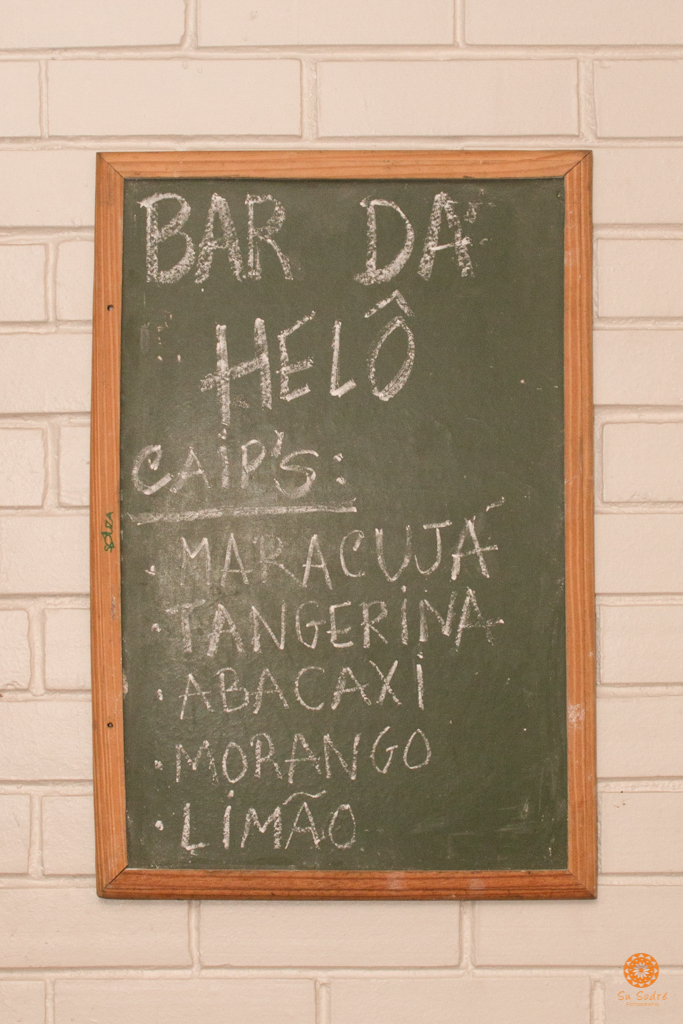 BAR DA
HELÔ
CAIP'S:
• MARACUJÁ
• TANGERINA
• ABACAXI
• MORANGO
• LIMÃO
Su Sodré